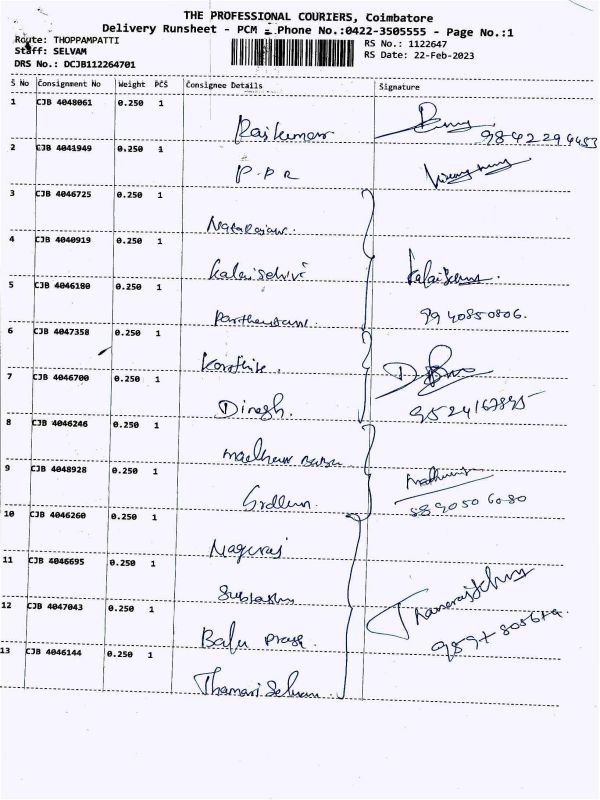 THE PROFESSIONAL COURIERS, Coimbatore
Delivery Runsheet - PCM - Phone No.:0422-3505555 - Page No.:1
Route: THOPPAMPATTI
RS No.: 1122647
Staff: SELVAM
RS Date: 22-Feb-2023
DRS No.: DCJB112264701
S No Consignment No Weight PCS Consignee Details Signature
1 CJB 4048061 0.250 1
Rajkumar
2 CJB 4041949 0.250 1
P.P.R
3 CJB 4046725 0.250 1
Natarajan.
4 CJB 4040919 0.250 1
Kalaiselvi
5 CJB 4046180 0.250 1
9940850806.
6 CJB 4047358 0.250 1
Karthik.
7 CJB 4046700 0.250 1
Dinesh.
8 CJB 4046246 0.250 1
9 CJB 4048928 0.250 1
10 CJB 4046260 0.250 1
Nagaraj
11 CJB 4046695 0.250 1
12 CJB 4047043 0.250 1
13 CJB 4046144 0.250 1
Thamarai Selvan.